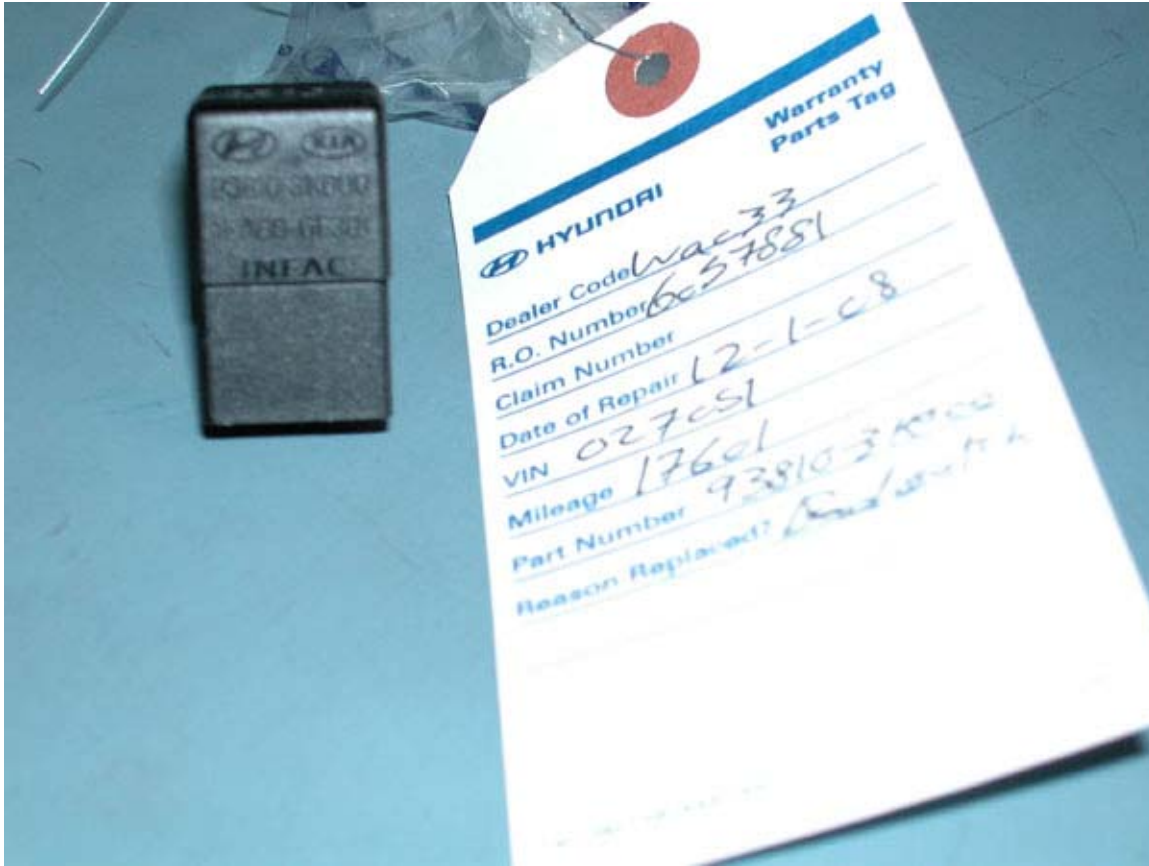 KIA
INFAC
Warranty
Parts Tag
HYUNDAI
Dealer Code Wac33
R.O. Number 6c57881
Claim Number
Date of Repair 12-1-c8
VIN 027c51
Mileage 17601
Part Number 93810-3K000
Reason Replaced?